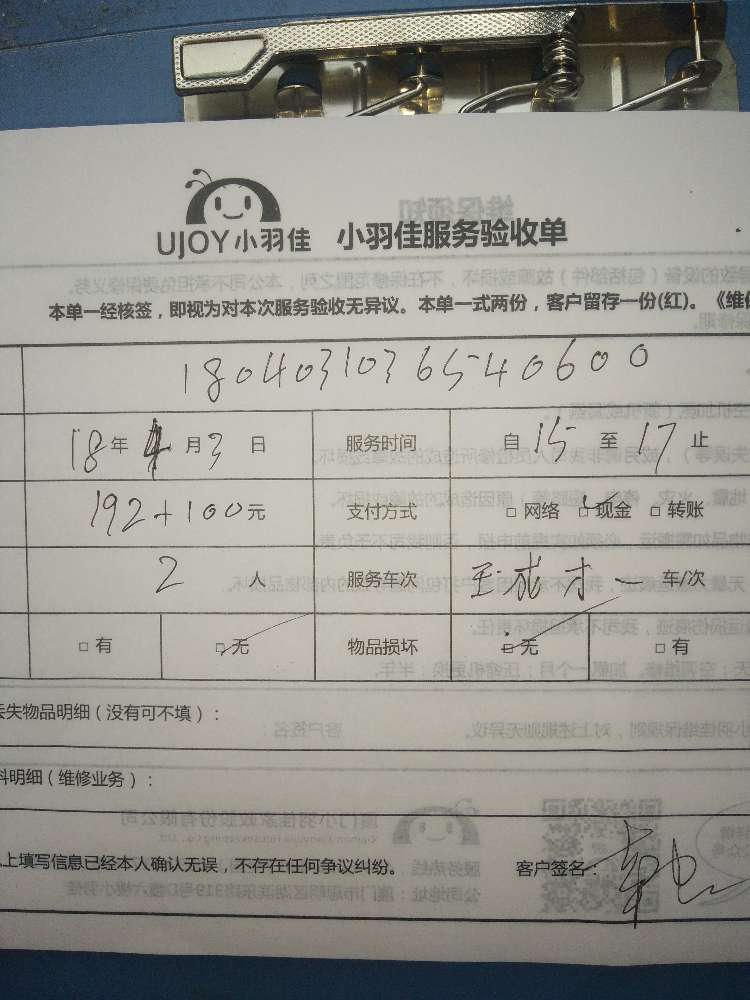 UJOY小羽佳 小羽佳服务验收单
本单一经核签，即视为对本次服务验收无异议。本单一式两份，客户留存一份(红)。《维
1804031036540600
18年4月3日 服务时间 自15至17止
192+100元 支付方式 □网络 □现金 □转账
2人 服务车次 一车/次
□有 □无 物品损坏 □无 □有
丢失物品明细（没有可不填）：
料明细（维修业务）：
以上填写信息已经本人确认无误，不存在任何争议纠纷。 客户签名：